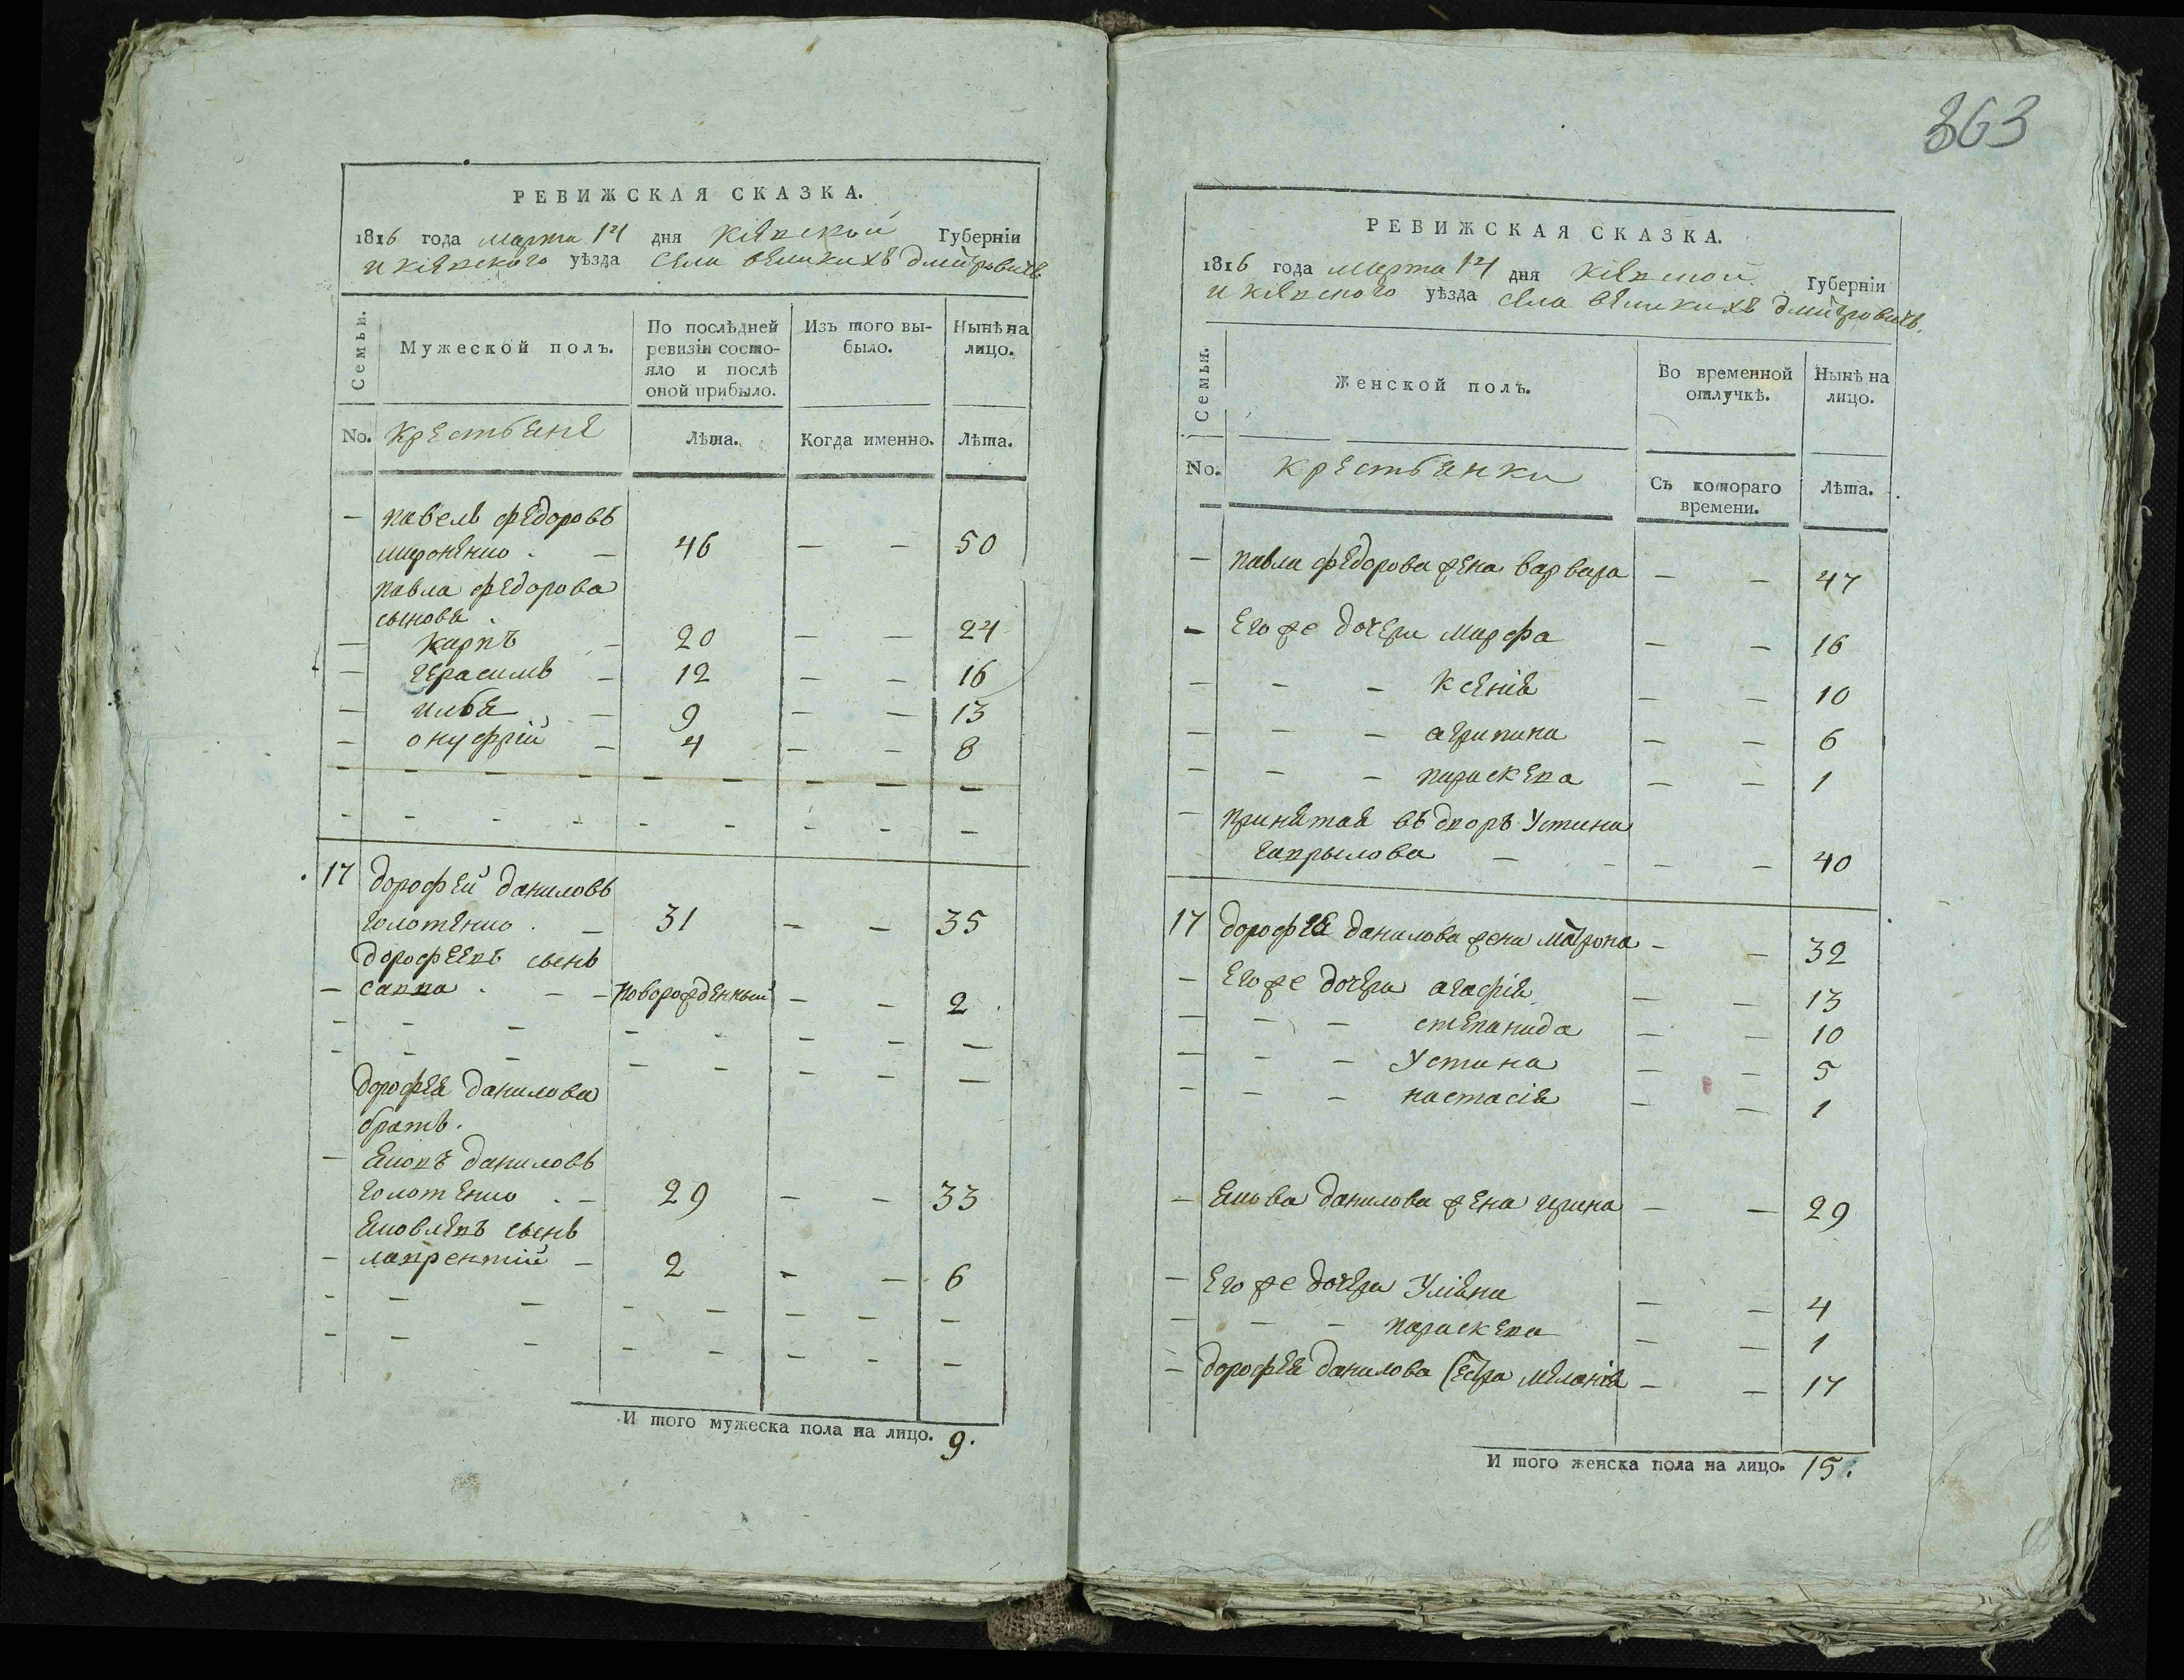 РЕВИЖСКАЯ СКАЗКА.
1816 года марта 14 дня Кіевской Губерніи
и кіевского уѣзда села великихъ дмитровичь
Семьи.
Мужеской полъ.
По послѣдней
ревизіи состо-
яло и послѣ
оной прибыло.
Изъ того вы-
было.
Нынѣ на
лицо.
No. Крестьяне Лѣта. Когда именно. Лѣта.
— павелъ федоровъ
мироненко . — 46 — — 50
павла федорова
сыновя .
— карпъ — 20 — — 24
— герасимъ — 12 — — 16
— илья — 9 — — 13
— онуфрій — 4 — — 8
17 дорофей даниловъ
голотенко . — 31 — — 35
дорофеевъ сынъ
— савва . — — новорожденный — — 2
дорофея данилова
братъ .
— яковъ даниловъ
голотенко . — 29 — — 33
яковлевъ сынъ
— лаврентій — 2 — — 6
И того мужеска пола на лицо. 9.
363
РЕВИЖСКАЯ СКАЗКА.
1816 года марта 14 дня Кіевской Губерніи
и кіевского уѣзда села великихъ дмитровичь.
Семьи.
Женской полъ.
Во временной
отлучкѣ.
Нынѣ на
лицо.
No. крестьянки
Съ котораго
времени.
Лѣта.
— павла федорова жена варвара — — 47
— его же дочери марфа — — 16
— — — ксенія — — 10
— — — агрипина — — 6
— — — параскева — — 1
— принятая въ дворъ Устина
гаврылова — — — — 40
17 дорофея данилова жена матрона — — 32
— его же дочери агафія — — 13
— — — степанида — — 10
— — — Устина — — 5
— — — настасія — — 1
— якова данилова жена ирина — — 29
— его же дочери Уліяна — — 4
— — — параскева — — 1
— дорофея данилова сестра меланія — — 17
И того женска пола на лицо. 15.